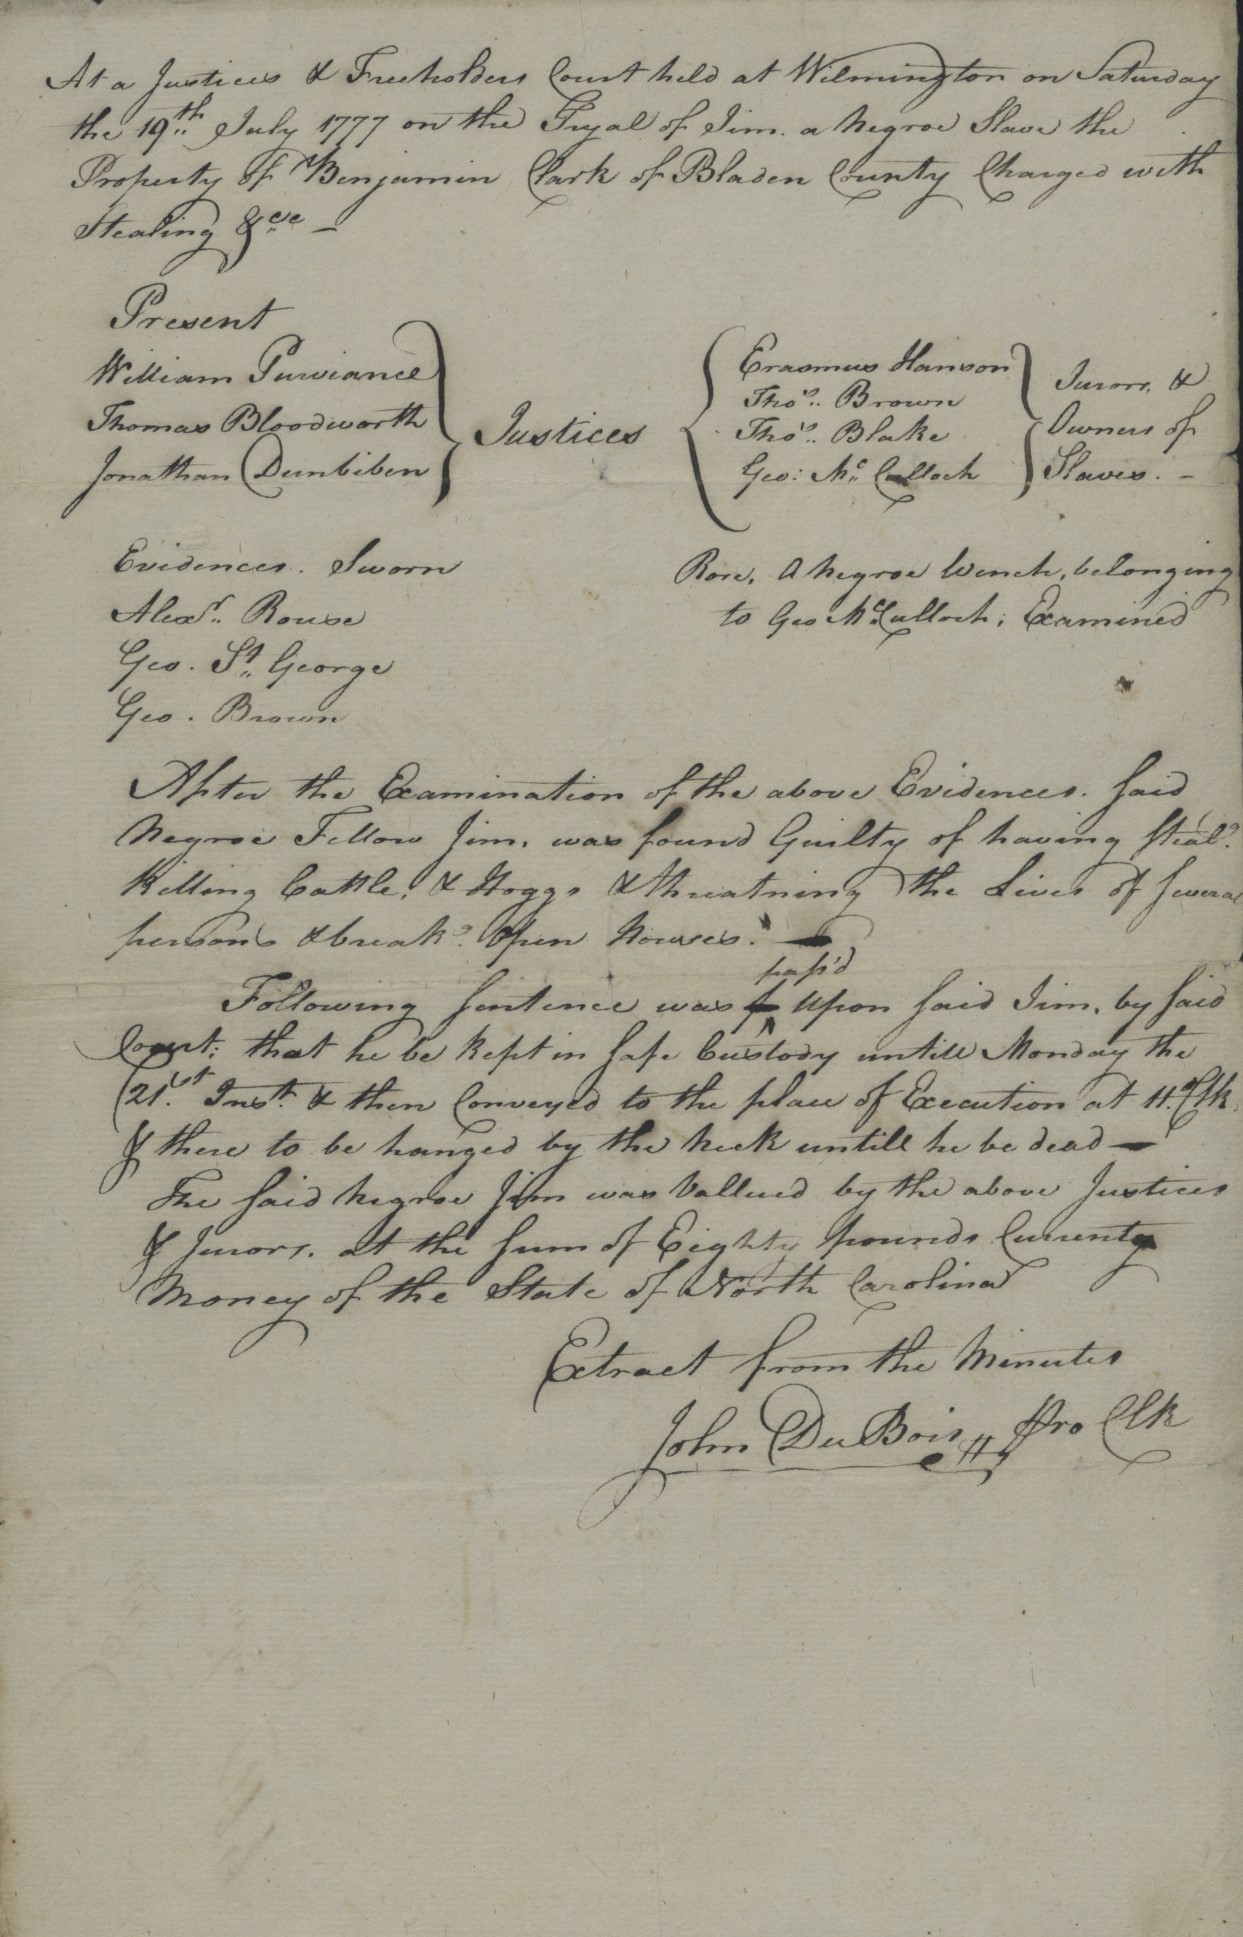 At a Justices & Freeholders Court held at Wilmington on Saturday
the 19th July 1777 on the Tryal of Jim. a Negroe Slave the
Property of Benjamin Clark of Bladen County Charged with
Stealing &ce —
Present
William Purviance
Thomas Bloodworth
Jonathan Dunbiben
Justices
Erasmus Hanson
Thos. Brown
Thos. Blake
Geo: Mc Culloch
Jurors, &
Owners of
Slaves. —
Evidences. Sworn
Alexr. Rouse
Geo. St. George
Geo. Brown
Rose, A Negroe Wench, belonging
to Geo McCulloch; Examined
After the Examination of the above Evidences. said
Negroe Fellow Jim, was found Guilty of having Steal.g
Killing Cattle, & Hoggs & threatning the Lives of several
persons & break.g Open Houses. —
pass'd
Following sentence was Upon said Jim, by said
Court; that he be kept in safe Custody untill Monday the
21st. Inst. & then Conveyed to the place of Execution at 11 oClk,
& there to be hanged by the neck untill he be dead —
The said Negroe Jim was Vallued by the above Justices
& Jurors. at the sum of Eighty pounds Currenty
Money of the State of North Carolina
Extract from the Minutes
John DuBois Pro Clk